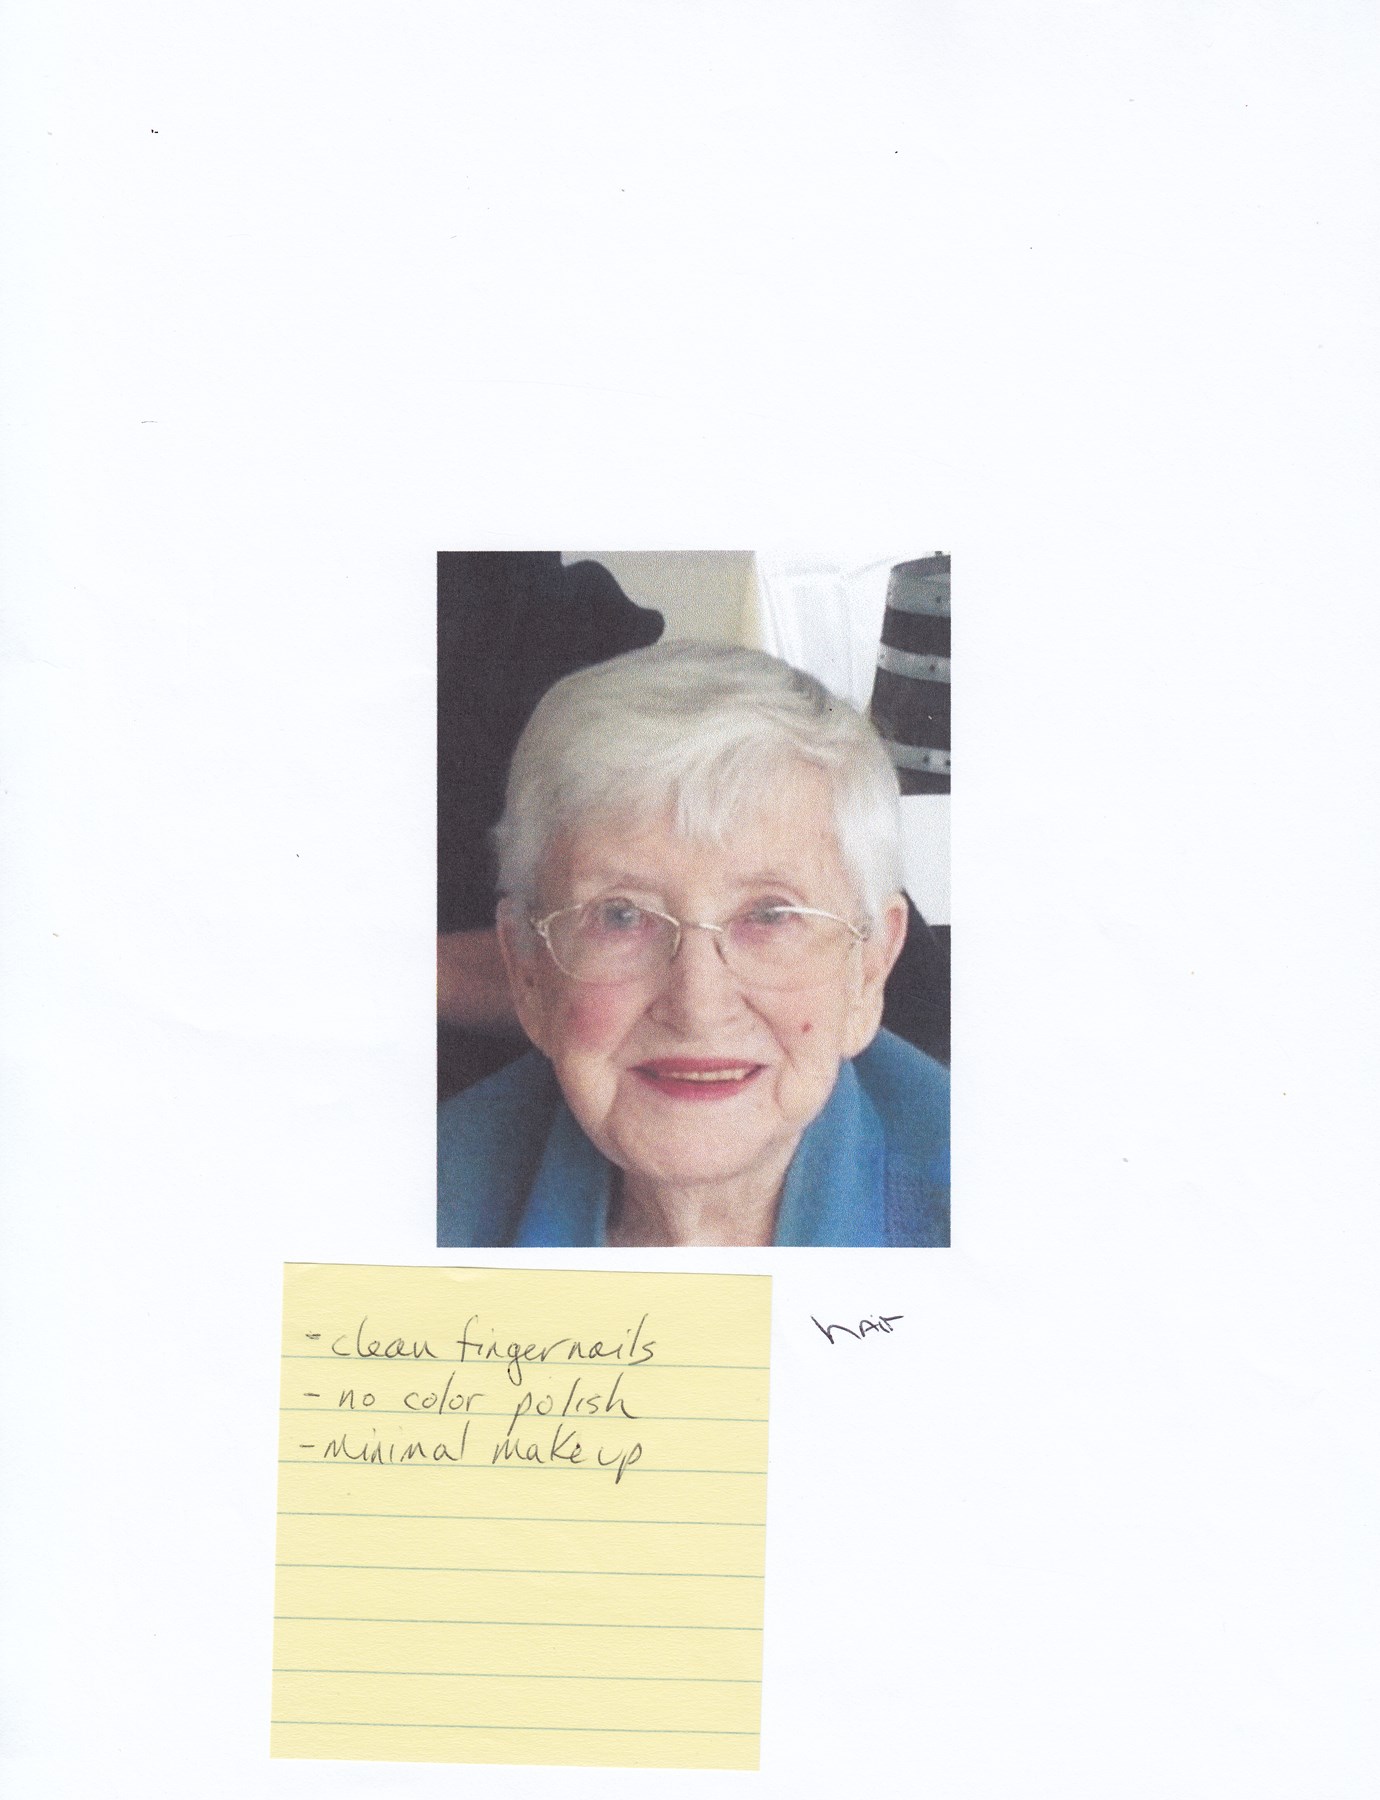 - clean fingernails
- no color polish
- minimal makeup
hair